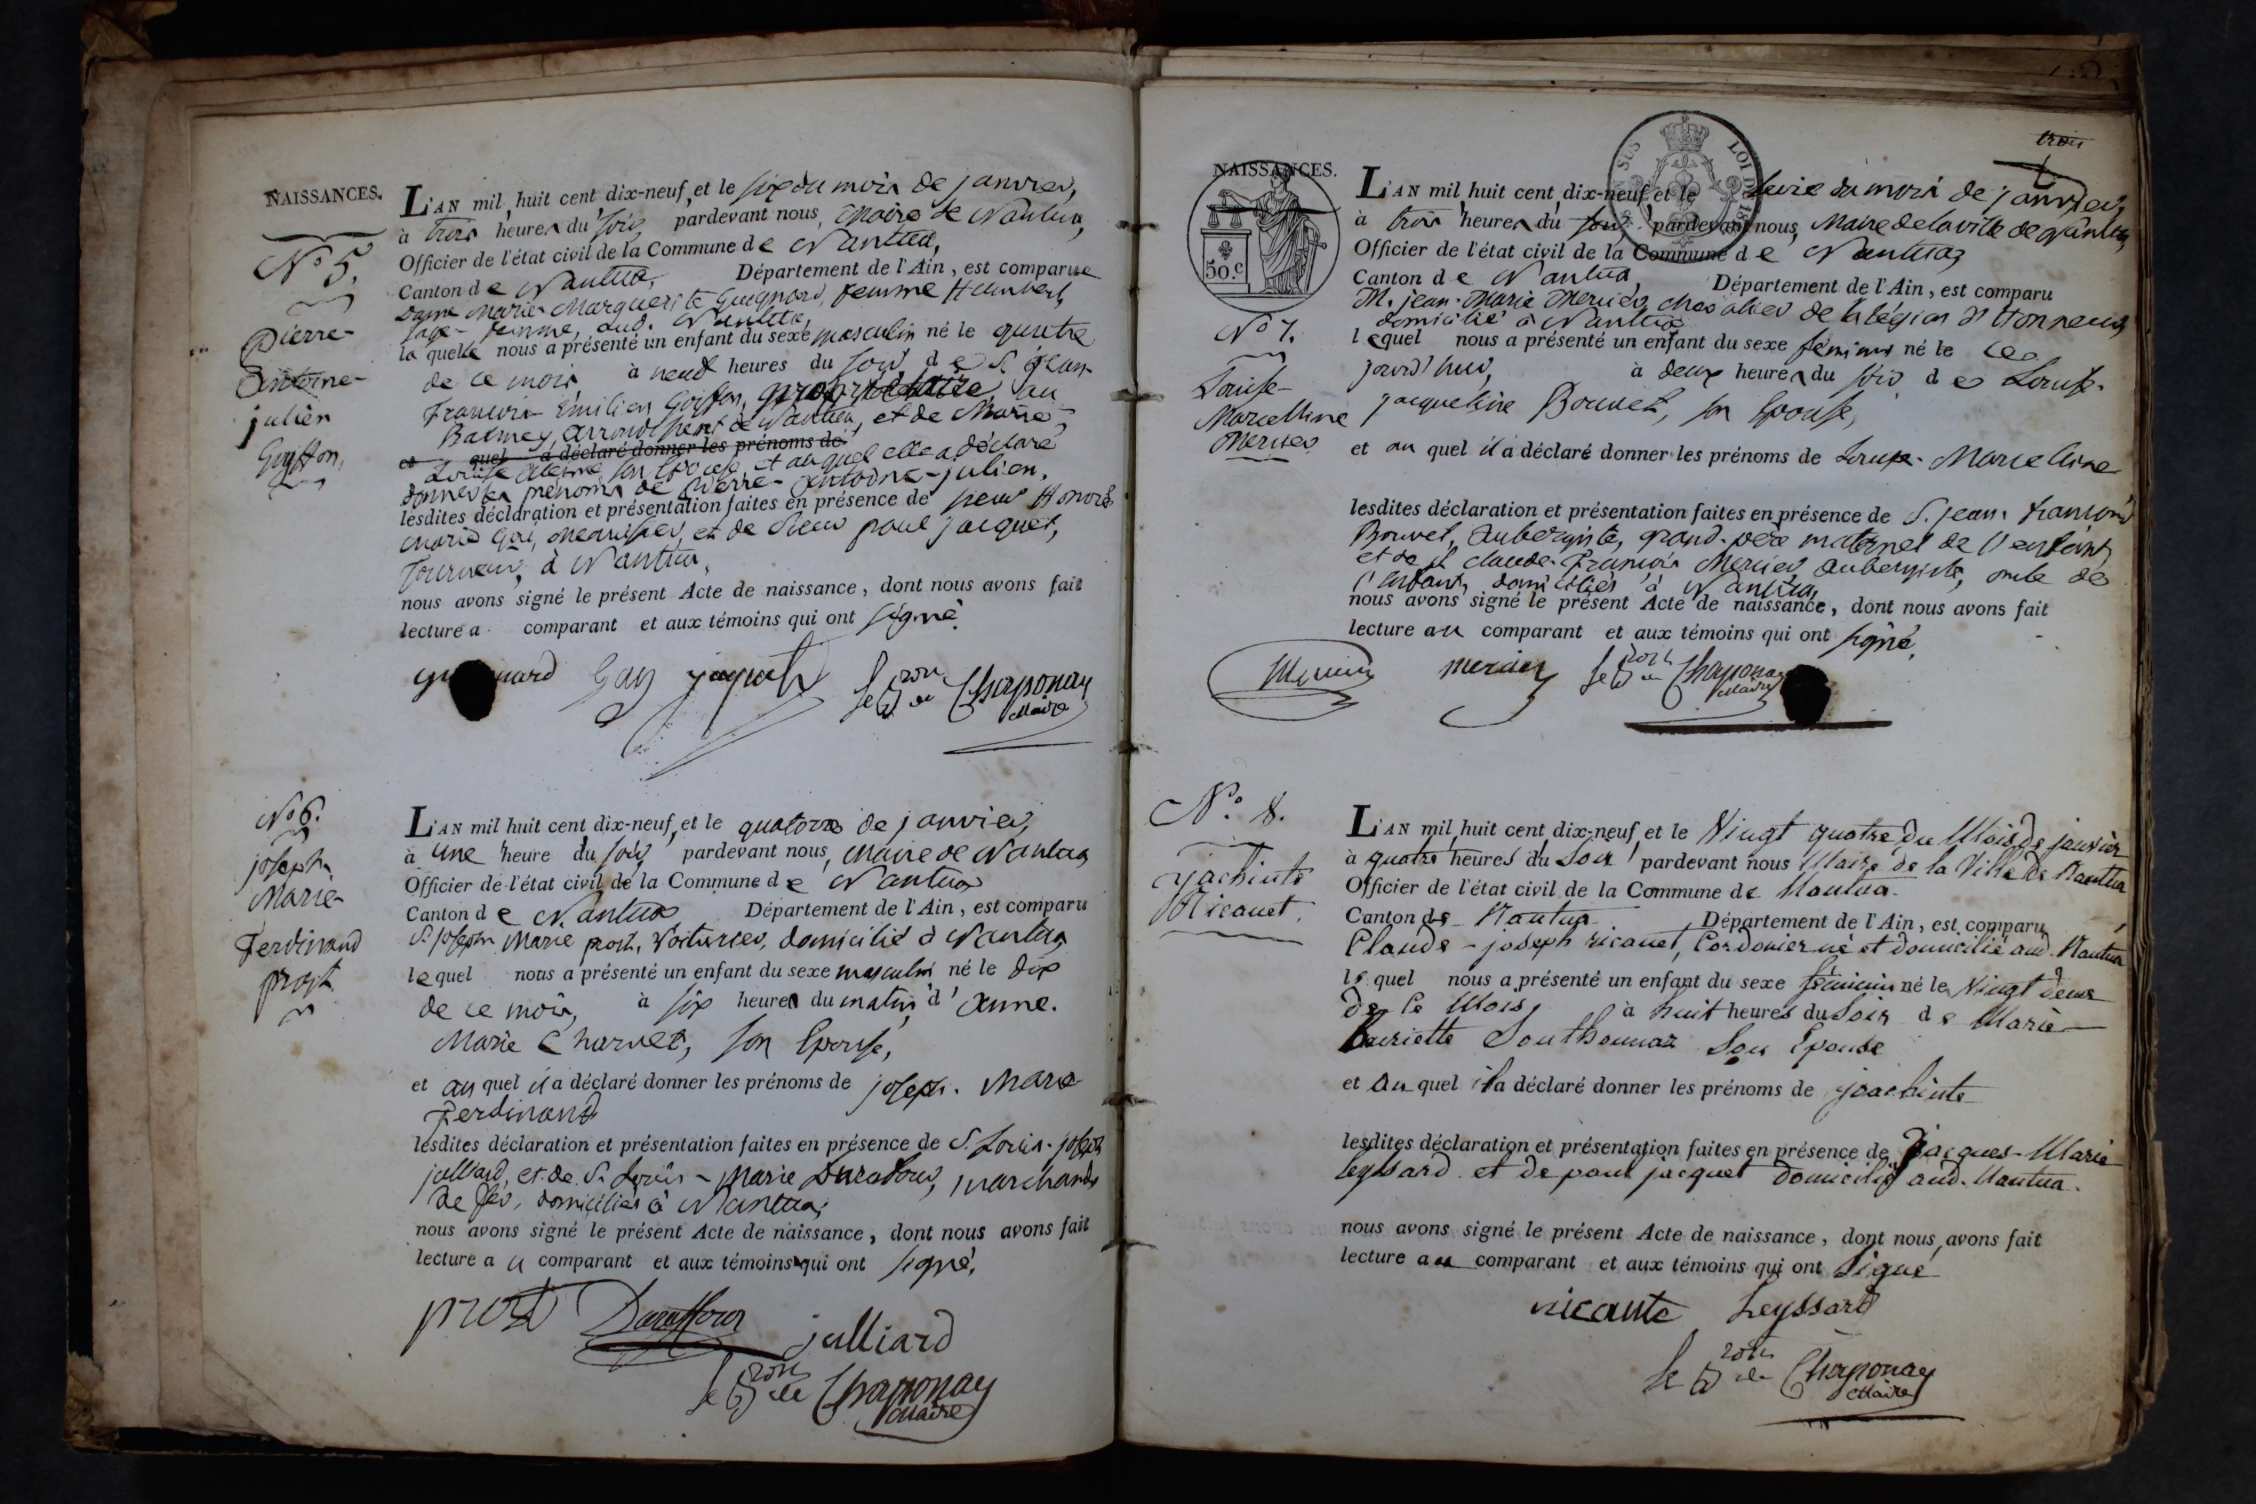 NAISSANCES.
N° 5.
Pierre-
Antoine-
julien
Goiffon,
L'AN mil huit cent dix-neuf, et le six du mois de janvier,
à trois heures du soir, pardevant nous, Maire de Nantua,
Officier de l'état civil de la Commune de Nantua,
Canton de Nantua, Département de l'Ain, est comparue
Dame Marie-Marguerite Guignard, femme Humbert,
sage-femme, aud. Nantua,
laquelle nous a présenté un enfant du sexe masculin né le quatre
de ce mois à neuf heures du soir, de S. jean-
françois Emilien Goiffon, propriétaire, au
Balmey, arrondissent de Nantua, et de Marie-
et quel a déclaré donner les prénoms de
Louise son Epouse, et auquel elle a déclaré
donner les prénoms de Pierre-Antoine-julien.
lesdites déclaration et présentation faites en présence de sieur Honoré
Marie Gai, Menuisier, et de Sieur paul jacquet,
Tourneur, à Nantua,
nous avons signé le présent Acte de naissance, dont nous avons fait
lecture a comparant et aux témoins qui ont signé.
Gay jaquet
le de Chaponay
Maire
N° 6.
joseph-
Marie-
Ferdinand
prost
L'AN mil huit cent dix-neuf, et le quatorze de janvier,
à une heure du soir, pardevant nous, Maire de Nantua
Officier de l'état civil de la Commune de Nantua
Canton de Nantua Département de l'Ain, est comparu
S. joseph Marie prost, Voiturier, domicilié à Nantua
lequel nous a présenté un enfant du sexe masculin né le dix
de ce mois, à six heures du matin, d'Anne-
Marie Charvet, son Epouse,
et au quel il a déclaré donner les prénoms de joseph-Marie
Ferdinand
lesdites déclaration et présentation faites en présence de S. Louis-joseph
julliard, et de S. Louis-Marie Duraffour, marchands
de fer, domiciliés à Nantua,
nous avons signé le présent Acte de naissance, dont nous avons fait
lecture au comparant et aux témoins qui ont signé.
prost Duraffour julliard
le de Chaponay
Maire
trois
NAISSANCES.
50.c
SUS LOI DE 18
N° 7.
Louise-
Marcelline
Mercier
L'AN mil huit cent dix-neuf, et le seize du mois de janvier,
à trois heures du soir pardevant nous, Maire de la ville de Nantua,
Officier de l'état civil de la Commune de Nantua
Canton de Nantua, Département de l'Ain, est comparu
M. jean-Marie Mercier, chevalier de la légion d'Honneur,
domicilié à Nantua
lequel nous a présenté un enfant du sexe féminin né le ce
jourd'hui, à deux heures du soir de Louise-
jacqueline Bouvet, son Epouse,
et au quel il a déclaré donner les prénoms de Louise-Marcelline
lesdites déclaration et présentation faites en présence de S. jean-françois
Bouvet, Aubergiste, grand-père maternel de l'enfant,
et de S. claude-François Mercier aubergiste, oncle de
l'enfant, domiciliés à Nantua,
nous avons signé le présent Acte de naissance, dont nous avons fait
lecture au comparant et aux témoins qui ont signé.
Mercier mercier le de Chaponay
Maire
N° 8.
Ricanet.
L'AN mil huit cent dix-neuf, et le Vingt quatre du Mois de janvier
à quatre heures du Soir pardevant nous Maire de la Ville de Nantua
Officier de l'état civil de la Commune de Nantua.
Canton de Nantua Département de l'Ain, est comparu
Claude-joseph ricanet, Cordonier né et domicilié aud. Nantua
le quel nous a présenté un enfant du sexe féminin né le Vingt deux
de Ce Mois, à huit heures du Soir de Marie-
henriette Southonnaz Son Epouse
et au quel il a déclaré donner les prénoms de
lesdites déclaration et présentation faites en présence de jacques-Marie
leyssard et de paul jacquet domiciliés aud. Nantua.
nous avons signé le présent Acte de naissance, dont nous avons fait
lecture au comparant et aux témoins qui ont Signé
Leyssard
le de Chaponay
Maire